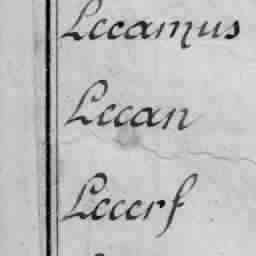 Lecamus
Lecan
Lecerf